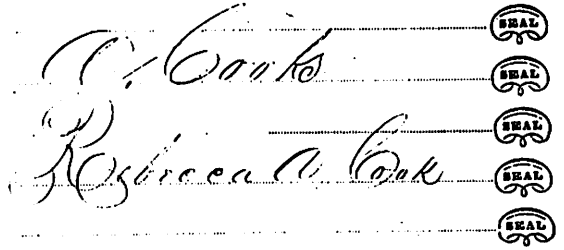 SEAL
C. Cooks SEAL
SEAL
Rebecca A Cook SEAL
SEAL